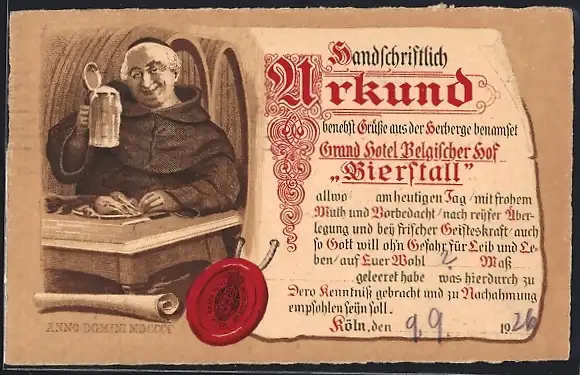 Handschriftlich
Urkund
benebst Grüße aus der Herberge benamset
Grand Hotel Belgischer Hof
„Bierstall"
allwo am heutigen Tag / mit frohem
Muth und Vorbedacht / nach reyfer Über-
legung und bey frischer Geisteskraft / auch
so Gott will ohn Gefahr für Leib und Le-
ben / auf Euer Wohl 2 Maß
geleeret habe was hierdurch zu
Dero Kenntniß gebracht und zu Nachahmung
empfohlen seyn soll.
Köln, den 9. 9 1926
ANNO DOMINI MDCCCC